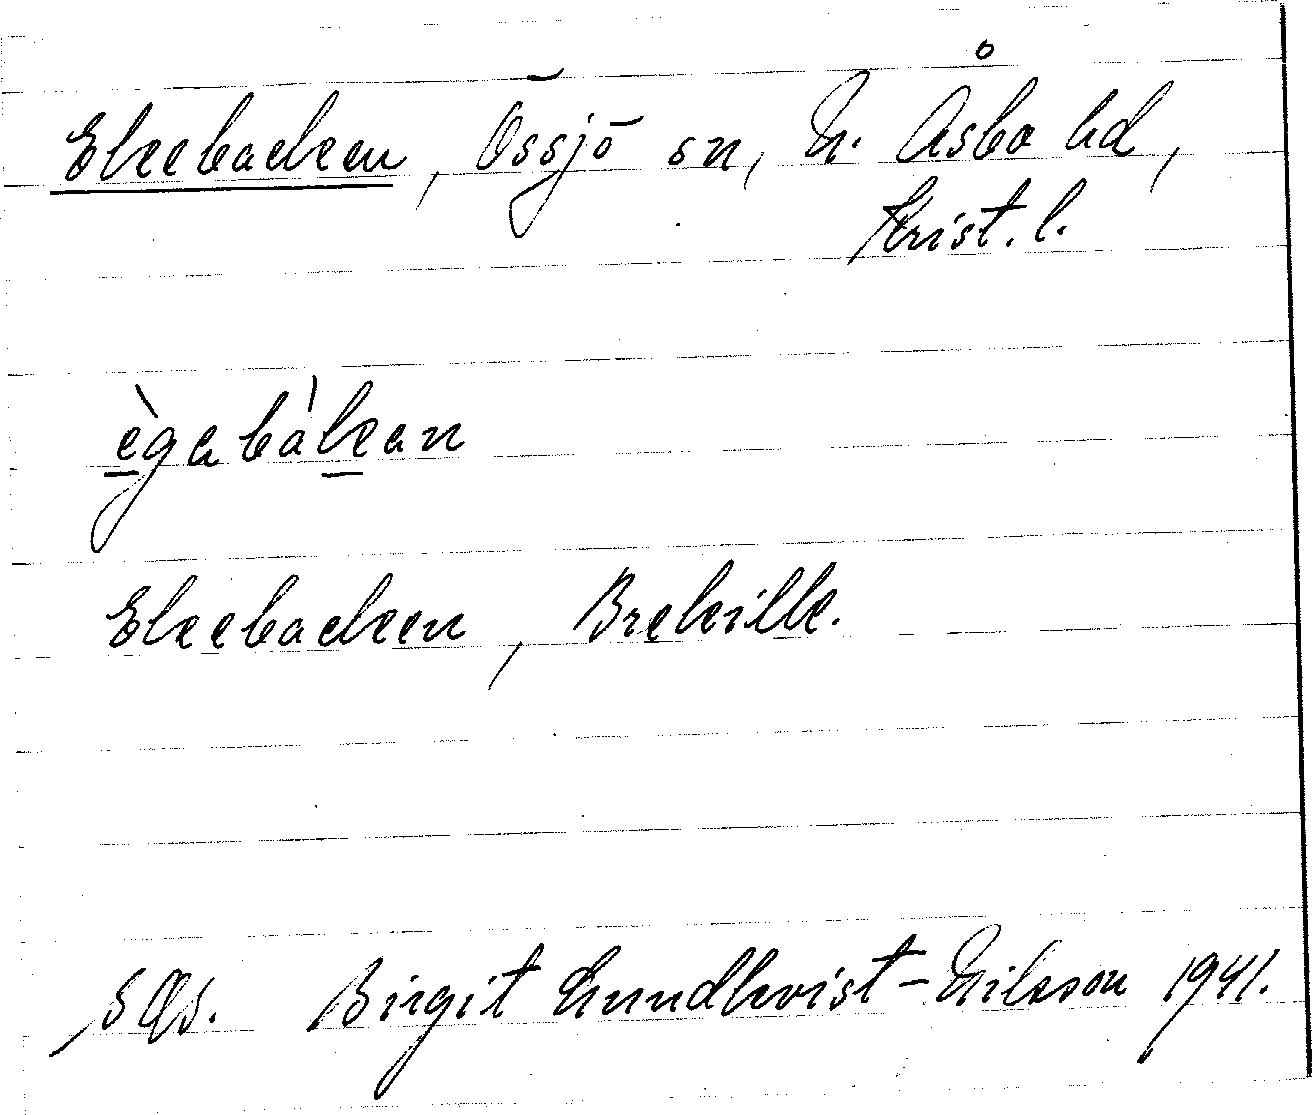 Ekebacken, Össjö sn, N. Åsbo hd,
Krist. l.
ègabàkan
Ekebacken, Brekille.
SOS. Birgit Lundkvist-Nilsson 1941.